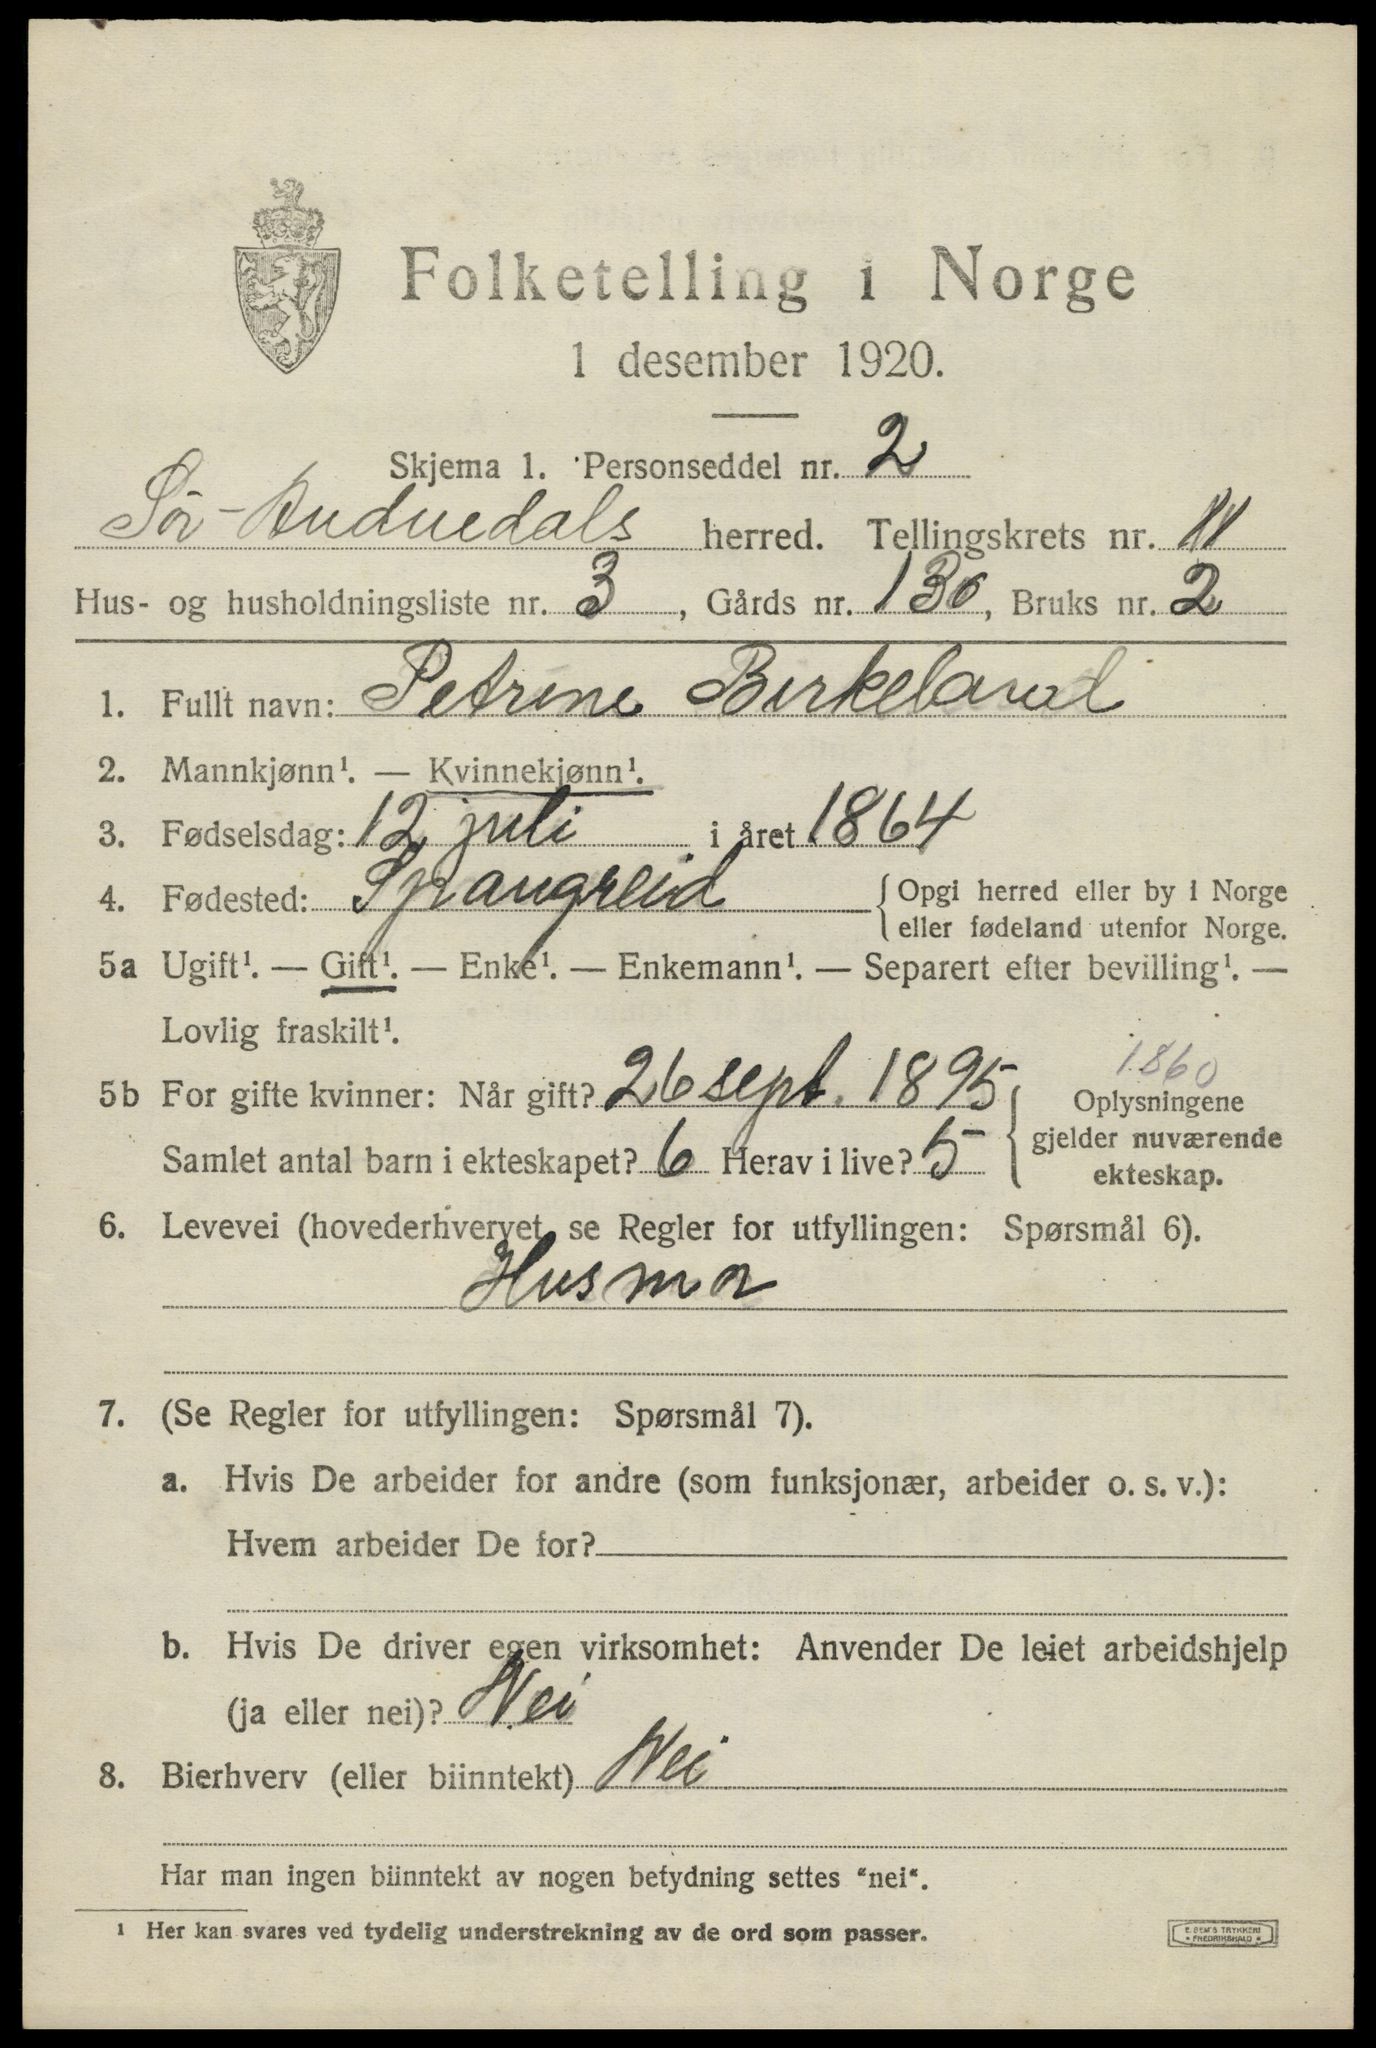 Folketelling i Norge
1 desember 1920.
Skjema 1. Personseddel nr. 2
Sör-Audnedals herred. Tellingskrets nr. 11
Hus- og husholdningsliste nr. 3, Gårds nr. 130, Bruks nr. 2
1. Fullt navn: Petrine Birkeland
2. Mannkjønn¹. — Kvinnekjønn¹.
3. Fødselsdag: 12 juli i året 1864
4. Fødested: Spangreid {Opgi herred eller by i Norge
eller fødeland utenfor Norge.
5a Ugift¹. — Gift¹. — Enke¹. — Enkemann¹. — Separert efter bevilling¹. —
Lovlig fraskilt¹.
1860
5b For gifte kvinner: Når gift? 26 sept. 1895 Oplysningene
gjelder nuværende
Samlet antal barn i ekteskapet? 6 Herav i live? 5 ekteskap.
6. Levevei (hovederhvervet, se Regler for utfyllingen: Spørsmål 6).
Husmor
7. (Se Regler for utfyllingen: Spørsmål 7).
a. Hvis De arbeider for andre (som funksjonær, arbeider o. s. v.):
Hvem arbeider De for?
b. Hvis De driver egen virksomhet: Anvender De leiet arbeidshjelp
(ja eller nei)? Nei
8. Bierhverv (eller biinntekt) Nei
Har man ingen biinntekt av nogen betydning settes "nei".
¹ Her kan svares ved tydelig understrekning av de ord som passer.
E. SEM'S TRYKKERI
FREDRIKSHALD